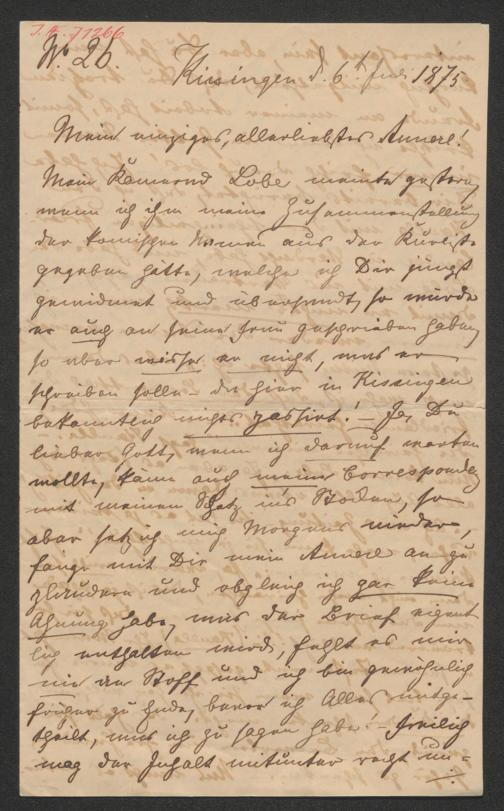 I.N. 71266
No 26.
Kissingen d. 6t Juni 1875
Mein einziges, allerliebstes Annerl!
Mein Kamerad Lobe meinte gestern,
wenn ich ihm meine Zusammenstellung
der komischen Namen aus der Kurliste
gegeben hätte, welche ich Dir jüngst
gewidmet und übersendet, so würde
er auch an seine Frau geschrieben haben,
so aber wisse er nicht, was er
schreiben solle – da hier in Kissingen
bekanntlich nichts passirt! – Ja, Du
lieber Gott, wenn ich darauf warten
wollte, käme auch meine Correspondenz
mit meinem Schatz in's Stocken, so
aber setz ich mich Morgens nieder,
fange mit Dir mein Annerl an zu
plaudern und obgleich ich gar keine
Ahnung habe, was der Brief eigent
lich enthalten wird, fehlt es mir
nie an Stoff und ich bin gewöhnlich
früher zu Ende, bevor ich Alles mitge-
theilt, was ich zu sagen habe! – Freilich
mag der Inhalt mitunter recht un-